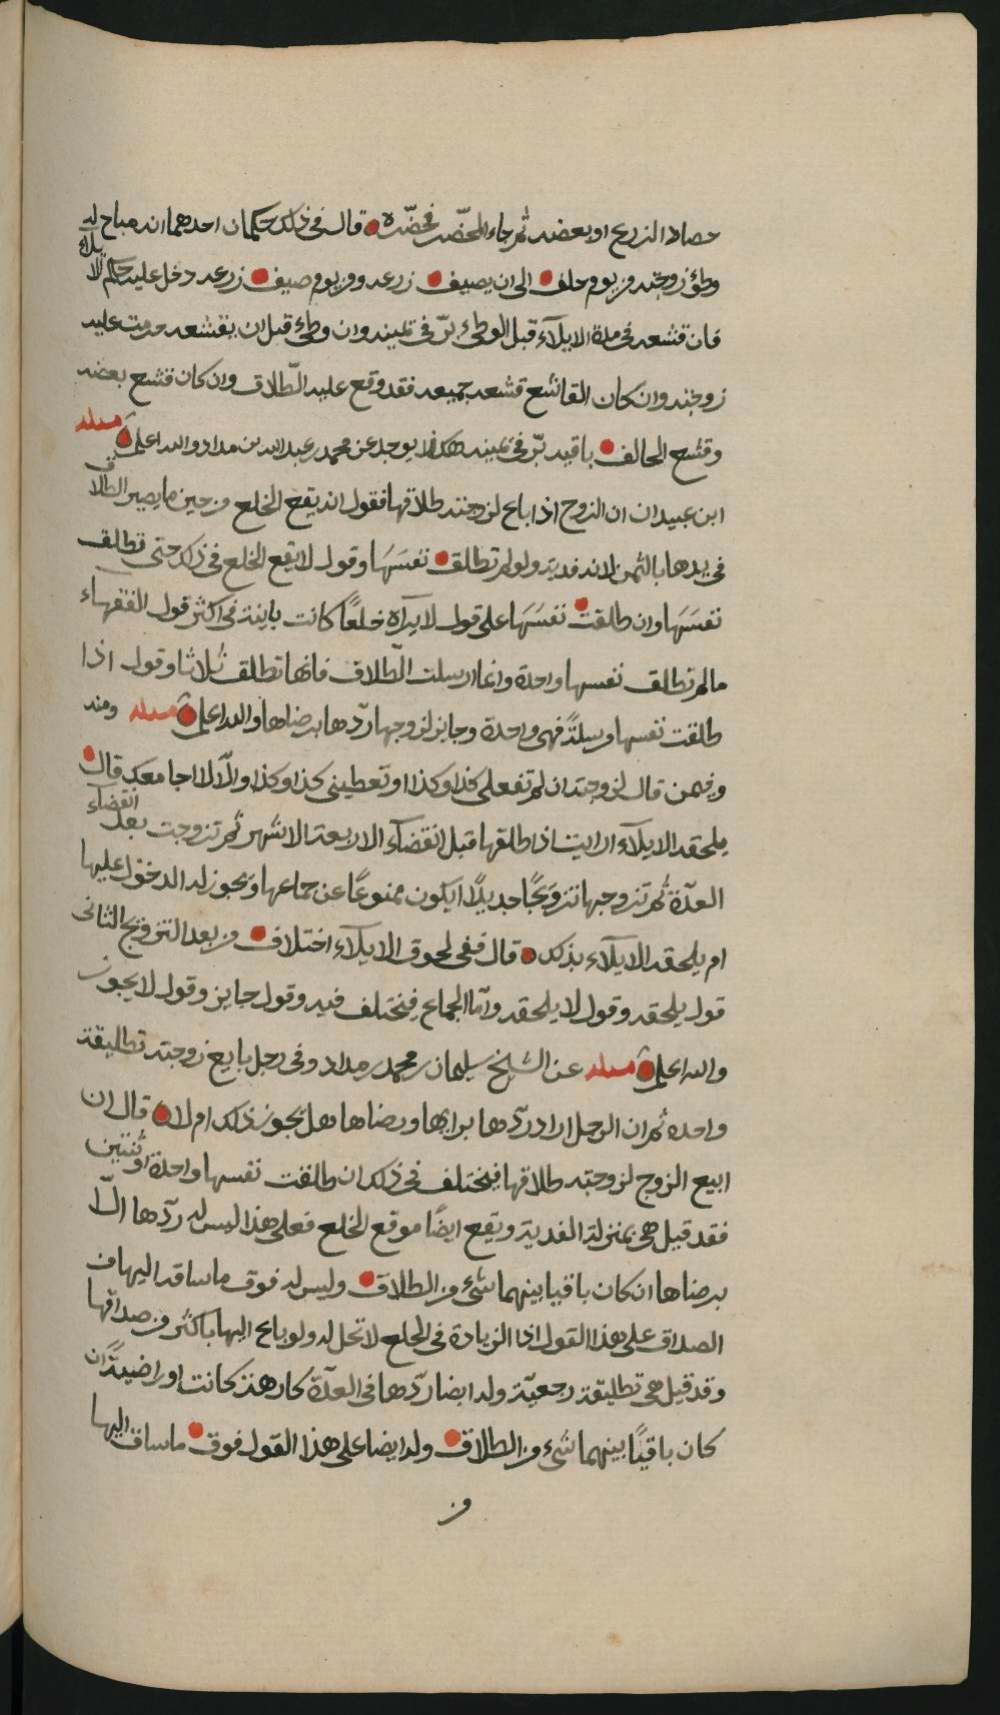 حصاد الزرع او بعضه ثم جاء المحضّر فحضّره قال فى ذلك حكمان احدهما انه مباح له
وطؤ زوجته من يوم حلف الى ان يصيف زرعه ومن يوم صيف زرعه دخل عليه حكم الايلاء
فان قشعه فى مدة الايلآء قبل الوطئ برّ فى يمينه وان وطئ قبل ان يقشعه حرمت عليه
زوجته وان كان القاشع قشعه جميعه فقد وقع عليه الطّلاق وان كان قشع بعضه
وقشع الحالف باقيه برّ فى يمينه هكذا يوجد عن محمد بن عبدالله بن مداد والله اعلم مسئله
ابن عبيدان ان الزوج اذا باع لزوجته طلاقها فقول انه يقع الخلع من حين ما يصير الطلاق
فى يدها بالثمن لانه فدية ولو لم تطلق نفسَهَا وقول لا يقع الخلع فى ذلك حتى تطلق
نفسَهَا وان طلقت نفسَهَا على قول لا يراه خلعًا كانت باينة فى اكثر قول الفقهاء
ما لم تطلق نفسها واحدة وانما ارسلت الطّلاق فانها تطلق ثلاثا وقول اذا
طلقت نفسها مرسلةً فهى واحدة وجايز لزوجها ردّها برضاها والله اعلم مسئله ومنه
وفيمن قال لزوجته ان لم تفعلى كذا وكذا او تعطينى كذا وكذا والّا لا اجامعك قال
يلحقه الايلآء ارايت اذا طلقها قبل انقضآء الاربعة الاشهر ثم تزوجت بعد انقضاء
العدّة ثم تزوجها تزويجًا جديدًا ايكون ممنوعًا عن جماعها ويجوز له الدخول عليها
ام يلحقه الايلآء بذلك قال ففى لحوق الايلآء اختلاف من بعد التزويج الثانى
قول يلحقه وقول لا يلحقه وامّا الجماع فيختلف فيه وقول جايز وقول لا يجوز
والله اعلم مسئله عن الشيخ سليمان بن محمد بن مداد وفى رجل بايع زوجته تطليقة
واحده ثم ان الرجل اراد ردّها برايها ورضاها هل يجوز ذلك ام لا قال ان
ابيع الزوج لزوجته طلاقها فيختلف فى ذلك ان طلقت نفسها واحدة او ثنتين
فقد قيل هى بمنزلة الفدية ويقع ايضًا موقع الخلع فعلى هذا ليس له ردّها الّا
برضاها ان كان باقيا بينهما شئ من الطلاق وليس له فوق ما ساقه اليها من
الصداق على هذا القول اذا الزيادة فى الخلع لا تحل له ولو باع اليها باكثر من صداقها
وقد قيل هى تطليقة رجعيّة وله ايضا ردّها فى العدّة كارهة كانت او راضيةً ان
كان باقيًا بينهما شئ من الطلاق وله ايضا على هذا القول فوق ما ساق اليها
من